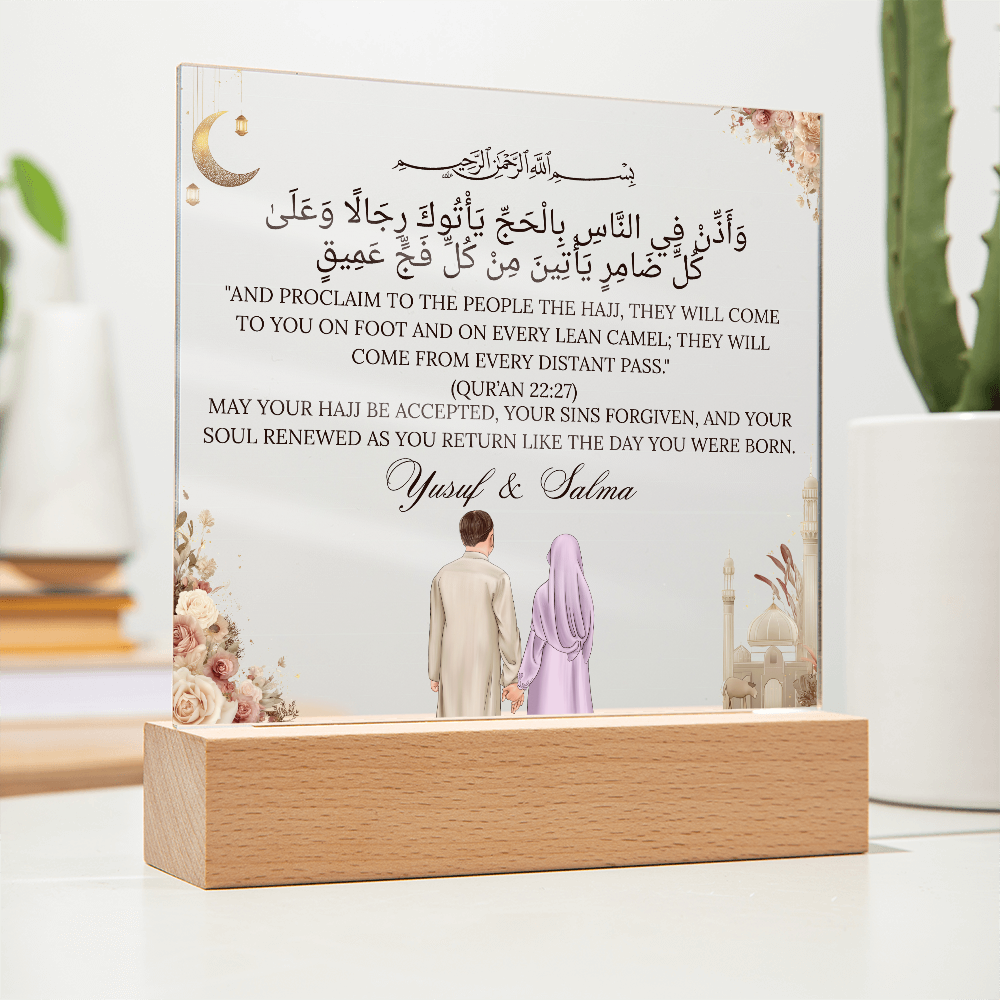 بِسْمِ اللَّهِ الرَّحْمَٰنِ الرَّحِيمِ
وَأَذِّنْ فِي النَّاسِ بِالْحَجِّ يَأْتُوكَ رِجَالًا وَعَلَىٰ
كُلِّ ضَامِرٍ يَأْتِينَ مِنْ كُلِّ فَجٍّ عَمِيقٍ
"AND PROCLAIM TO THE PEOPLE THE HAJJ, THEY WILL COME
TO YOU ON FOOT AND ON EVERY LEAN CAMEL; THEY WILL
COME FROM EVERY DISTANT PASS."
(QUR'AN 22:27)
MAY YOUR HAJJ BE ACCEPTED, YOUR SINS FORGIVEN, AND YOUR
SOUL RENEWED AS YOU RETURN LIKE THE DAY YOU WERE BORN.
Yusuf & Salma